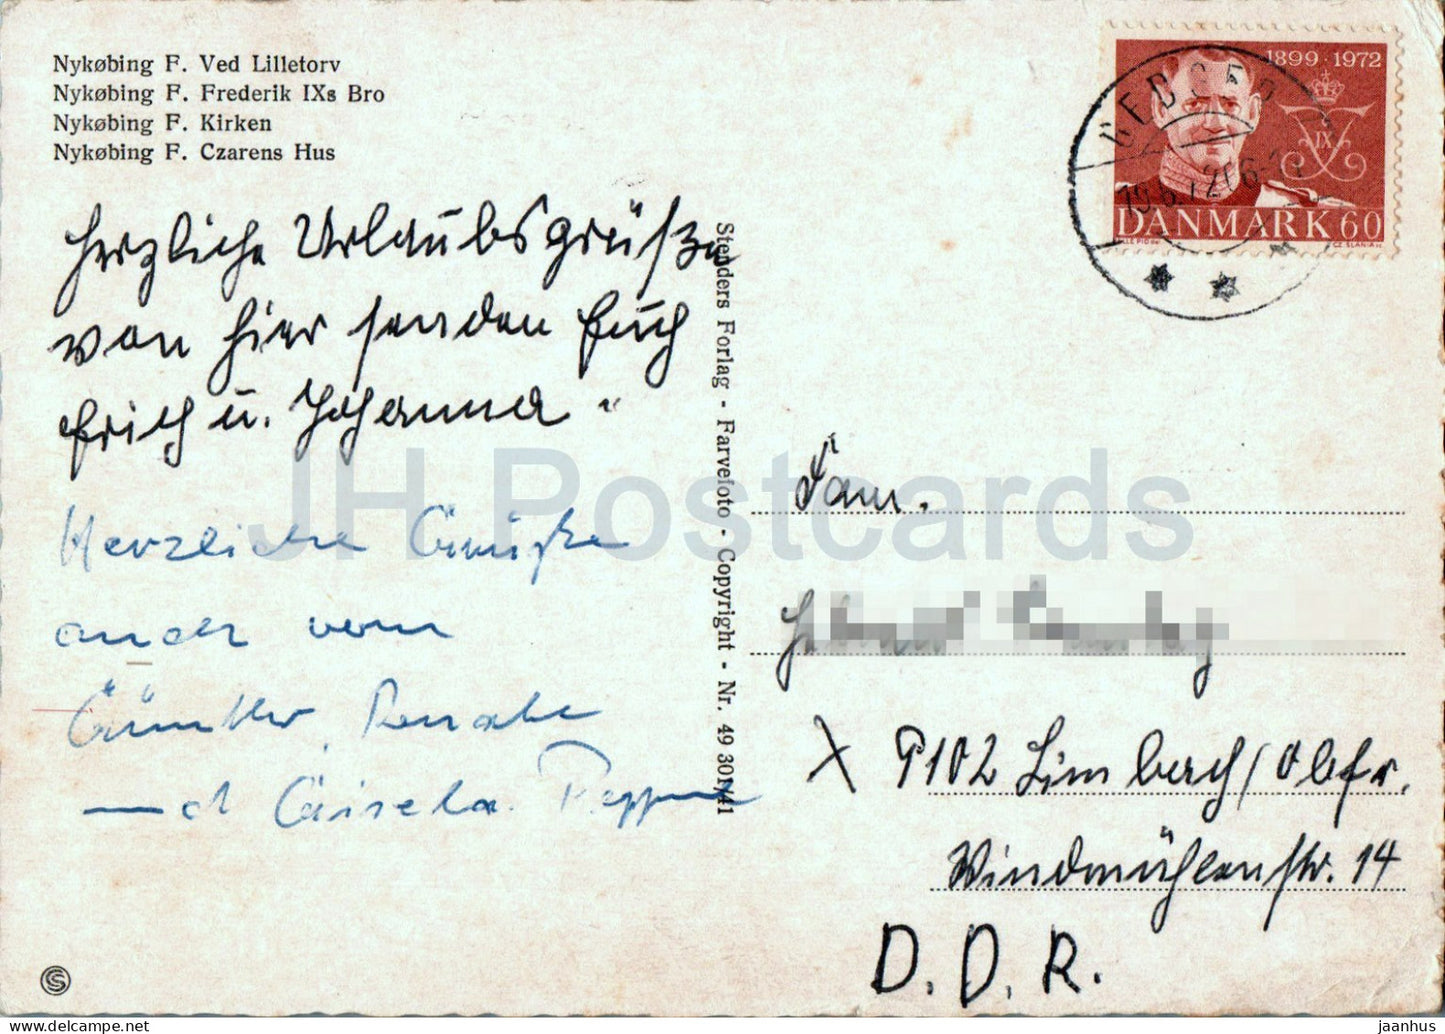 Nykøbing F. Ved Lilletorv
Nykøbing F. Frederik IXs Bro
Nykøbing F. Kirken
Nykøbing F. Czarens Hus
Herzliche Urlaubsgrüße
von hier senden Euch
Erich u. Johanna
Herzliche Grüße
auch vom
Günther, Renate
und Gisela
Stenders Forlag - Farvefoto - Copyright - Nr. 49 301/41
1899 · 1972
IX
DANMARK 60
CZ. SLANIA sc.
GEDSER
Fam.
9102 Limbach/Obfr.
Windmühlenstr. 14
D.D.R.
JH Postcards
delcampe.net
jaanhus